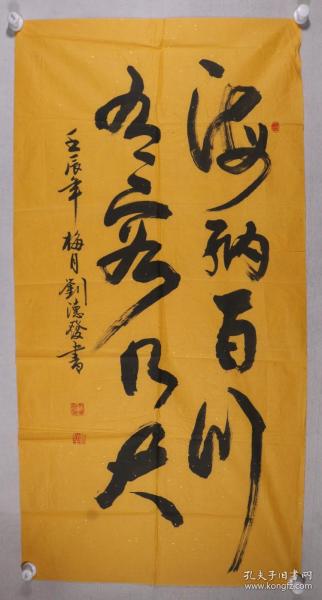 海纳百川
有容乃大
壬辰年 梅月 劉德發書
孔夫子旧书网
www.kongfz.com